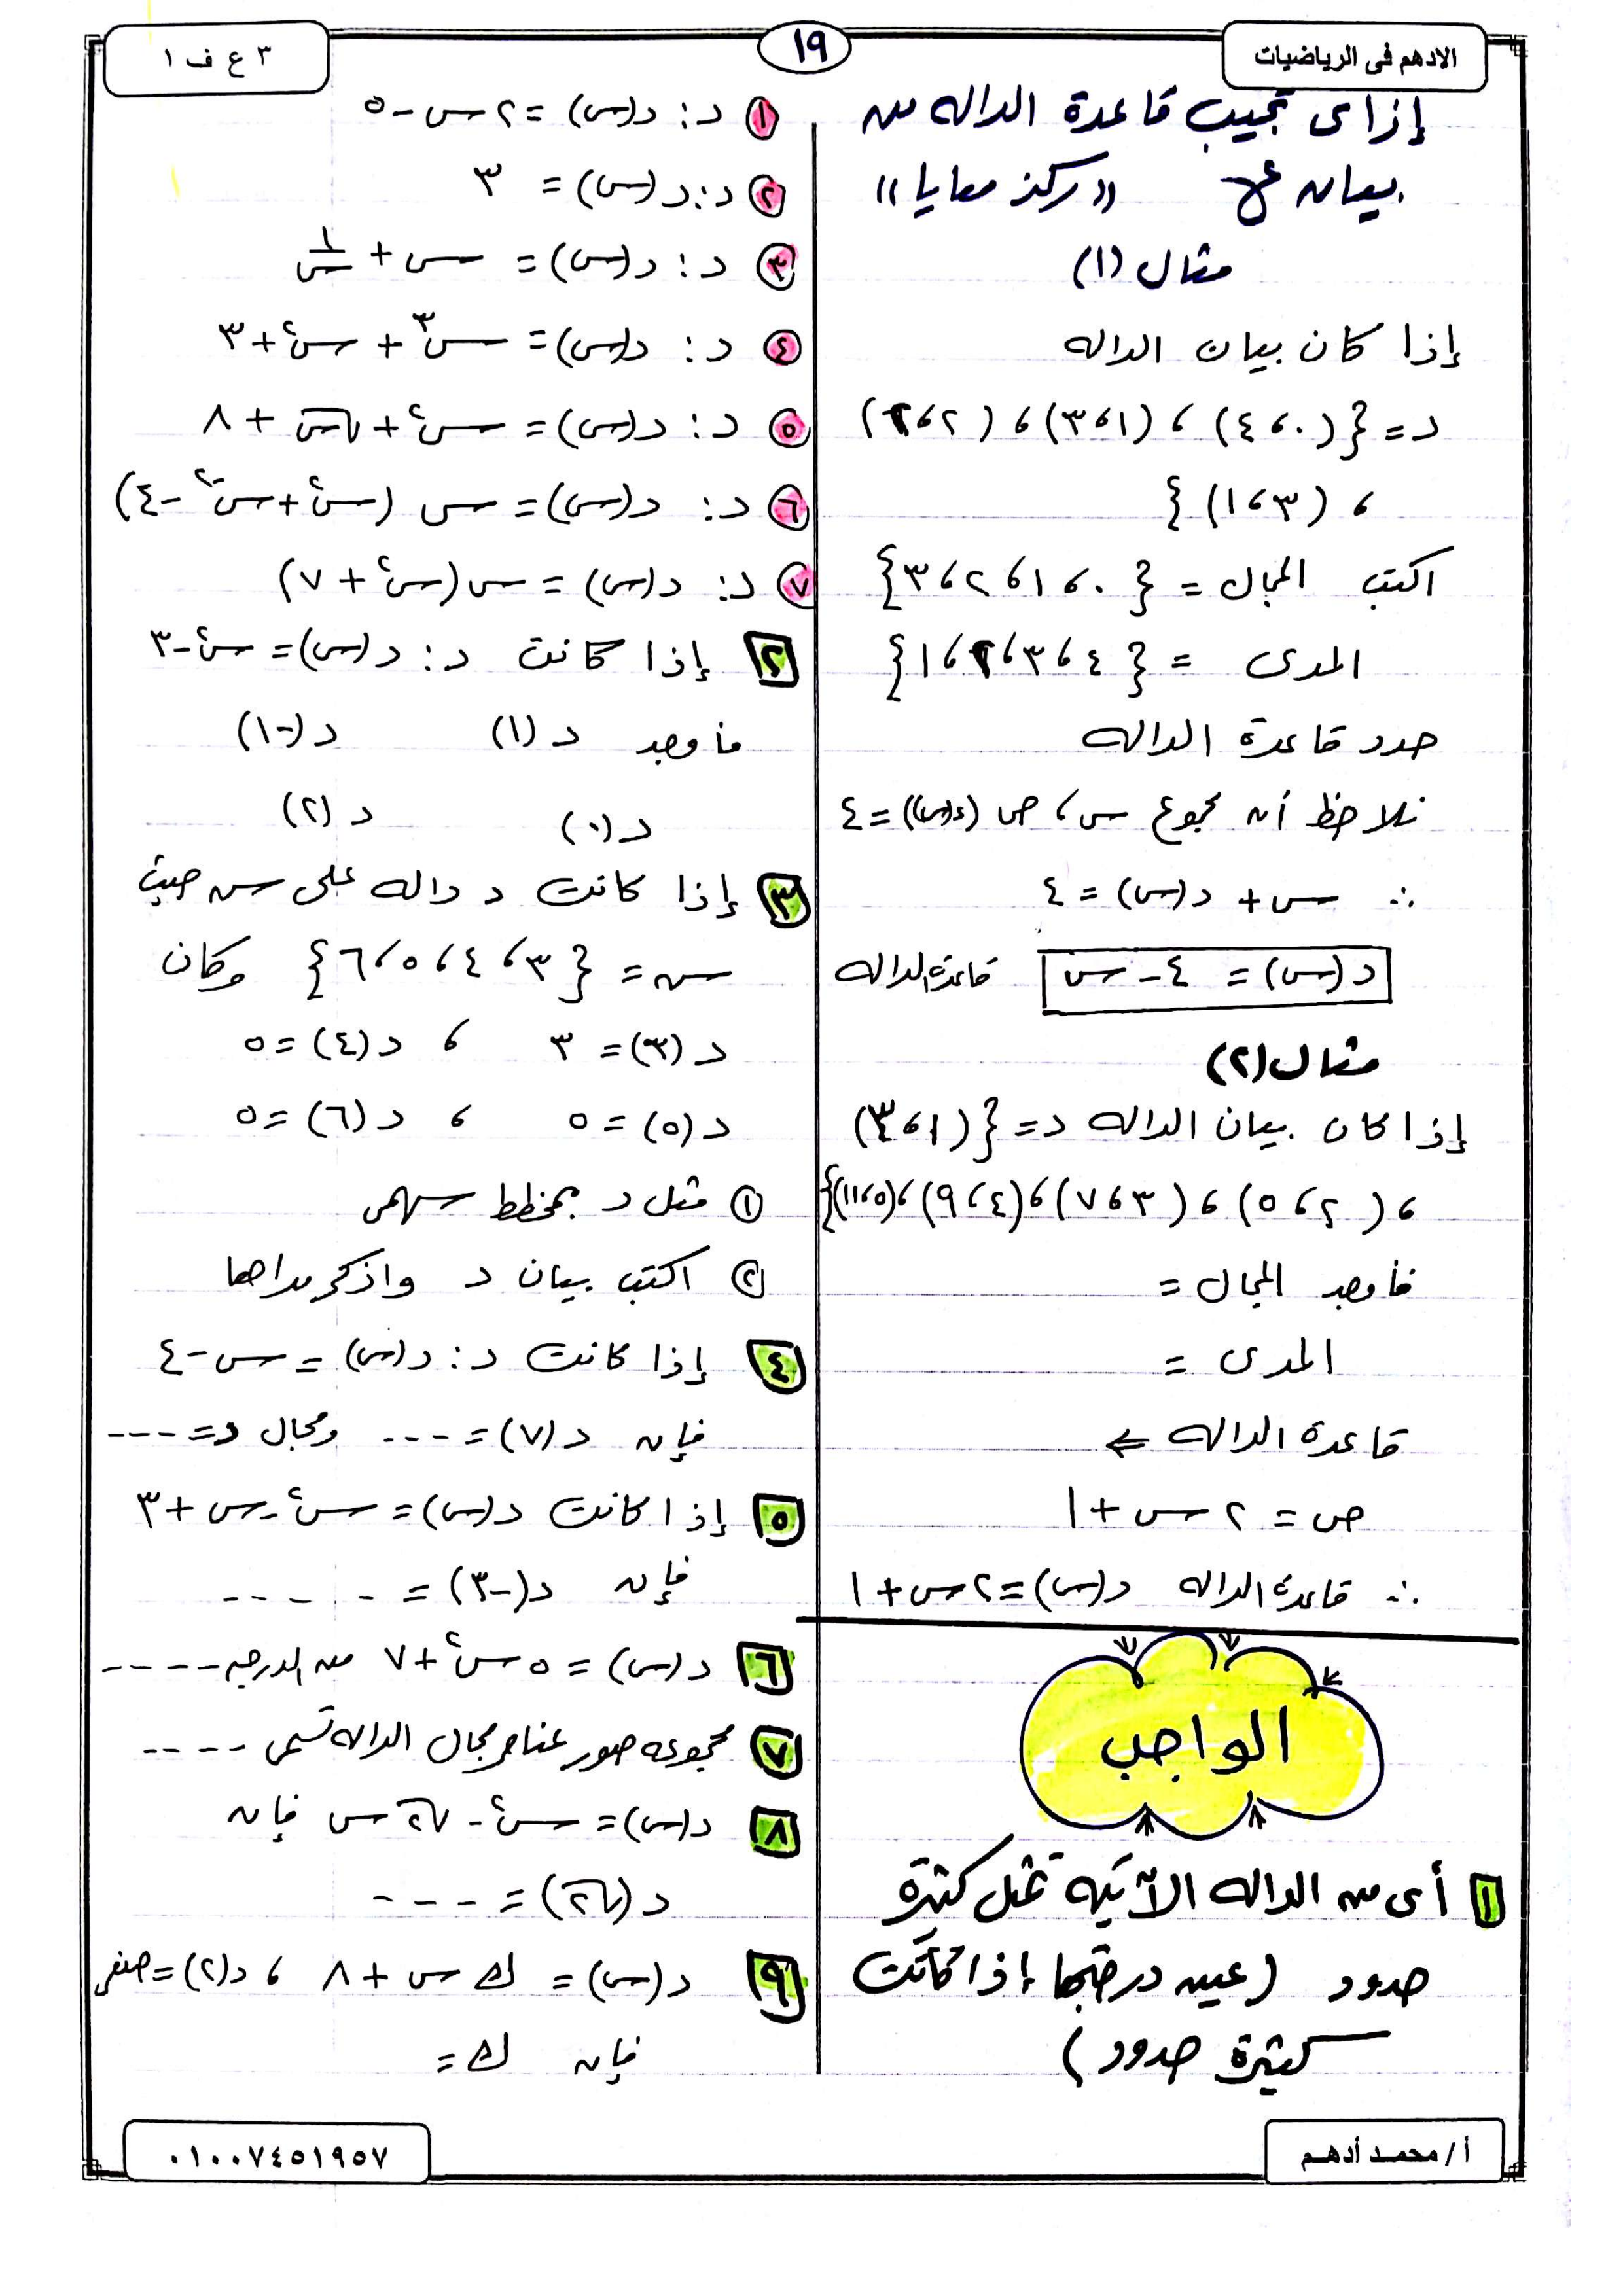 الادهم فى الرياضيات
١٩
٣ ع ف ١
إزاى تجيب قاعدة الداله من
بيان د «ركز معايا»
مثال (١)
إذا كان بيان الداله
د = {(٠، ٤)، (١، ٣)، (٢، ٢)
، (٣، ١)}
اكتب المجال = {٠، ١، ٢، ٣}
المدى = {٤، ٣، ٢، ١}
حدد قاعدة الداله
نلاحظ أن مجموع س، ص (د(س)) = ٤
∴ س + د(س) = ٤
د(س) = ٤ - س قاعدة الداله
مثال (٢)
إذا كان بيان الداله د = {(١، ٣)
، (٢، ٥)، (٣، ٧)، (٤، ٩)، (٥، ١١)}
فأوجد المجال =
المدى =
قاعدة الداله ⇐
ص = ٢ س + ١
∴ قاعدة الداله د(س) = ٢ س + ١
الواجب
١ أى من الداله الآتيه تمثل كثيرة
حدود (عين درجتها إذا كانت
كثيرة حدود)
١ د: د(س) = ٢ س - ٥
٢ د: د(س) = ٣
٣ د: د(س) = س + ١/س
٤ د: د(س) = س٣ + س٢ + ٣
٥ د: د(س) = س٢ + √س + ٨
٦ د: د(س) = س (س٢ + س-٢ - ٤)
٧ د: د(س) = س (س٢ + ٧)
٢ إذا كانت د: د(س) = س٢ - ٣
فأوجد د(١) د(-١)
د(٠) د(٢)
٣ إذا كانت د داله على س حيث
س = {٣، ٤، ٥، ٦} وكان
د(٣) = ٣ ، د(٤) = ٥
د(٥) = ٥ ، د(٦) = ٥
١ مثل د بمخطط سهمى
٢ اكتب بيان د واذكر مداها
٤ إذا كانت د: د(س) = س - ٤
فإن د(٧) = --- ومجال د = ---
٥ إذا كانت د(س) = س٢ - س + ٣
فإن د(-٣) = -----
٦ د(س) = ٥ س٢ + ٧ من الدرجه ----
٧ مجموعه صور عناصر مجال الداله تسمى ----
٨ د(س) = س٢ - √٢ س فإن
د(√٢) = ---
٩ د(س) = ك س + ٨ ، د(٢) = صفر
فإن ك =
أ/ محمـد أدهـم
٠١٠٠٧٤٥١٩٥٧